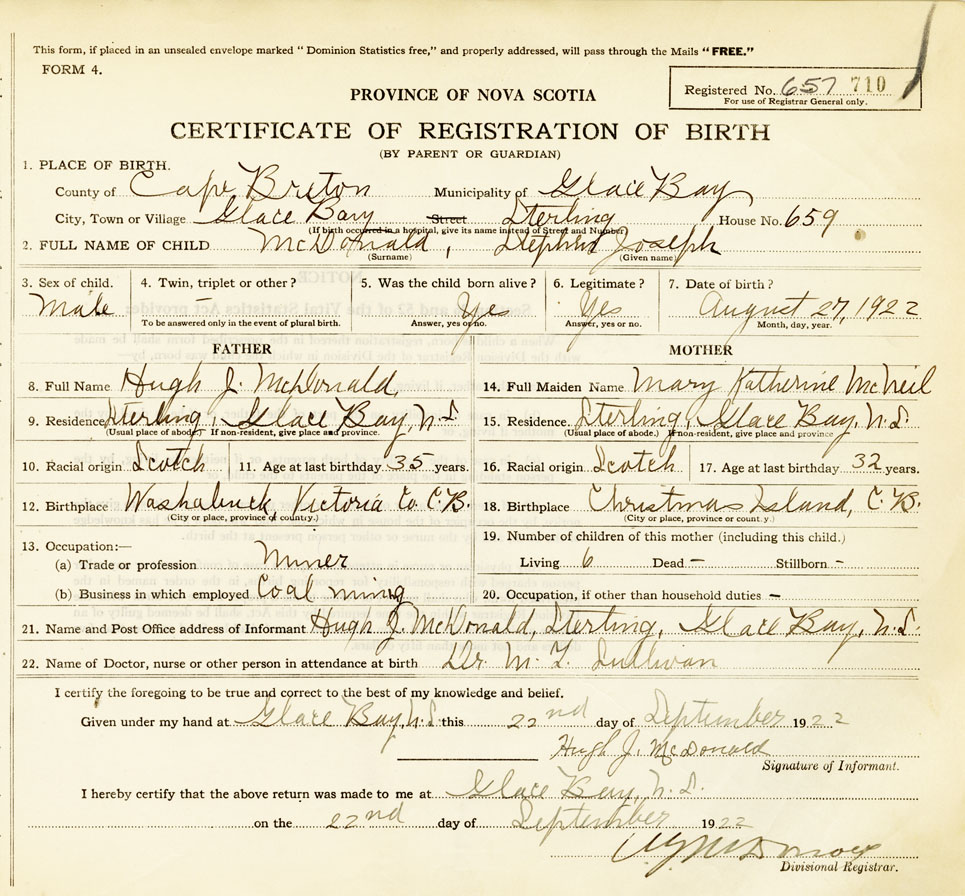 This form, if placed in an unsealed envelope marked "Dominion Statistics free," and properly addressed, will pass through the Mails "FREE."
FORM 4.
Registered No. 657 710
For use of Registrar General only.
PROVINCE OF NOVA SCOTIA
CERTIFICATE OF REGISTRATION OF BIRTH
(BY PARENT OR GUARDIAN)
1. PLACE OF BIRTH.
County of Cape Breton Municipality of Glace Bay
City, Town or Village Glace Bay Street Sterling House No. 659
(If birth occurred in a hospital, give its name instead of Street and Number)
2. FULL NAME OF CHILD McDonald, Stephen Joseph
(Surname) (Given name)
3. Sex of child. 4. Twin, triplet or other? 5. Was the child born alive? 6. Legitimate? 7. Date of birth?
Male – Yes Yes August 27, 1922
To be answered only in the event of plural birth. Answer, yes or no. Answer, yes or no. Month, day, year.
FATHER MOTHER
8. Full Name Hugh J. McDonald 14. Full Maiden Name Mary Katherine McNeil
9. Residence Sterling, Glace Bay, N.S. 15. Residence. Sterling, Glace Bay, N.S.
(Usual place of abode.) If non-resident, give place and province. (Usual place of abode.) If non-resident, give place and province
10. Racial origin Scotch 11. Age at last birthday 35 years. 16. Racial origin Scotch 17. Age at last birthday 32 years.
12. Birthplace Washabuck Victoria Co. C.B. 18. Birthplace Christmas Island, C.B.
(City or place, province or country.) (City or place, province or country.)
13. Occupation:— 19. Number of children of this mother (including this child.)
(a) Trade or profession Miner Living 6 Dead – Stillborn –
(b) Business in which employed Coal mining 20. Occupation, if other than household duties –
21. Name and Post Office address of Informant Hugh J. McDonald, Sterling, Glace Bay, N.S.
22. Name of Doctor, nurse or other person in attendance at birth Dr. M. T. Sullivan
I certify the foregoing to be true and correct to the best of my knowledge and belief.
Given under my hand at Glace Bay, N.S. this 22nd day of September 1922
Hugh J. McDonald
Signature of Informant.
I hereby certify that the above return was made to me at Glace Bay, N.S.
on the 22nd day of September 1922
Divisional Registrar.